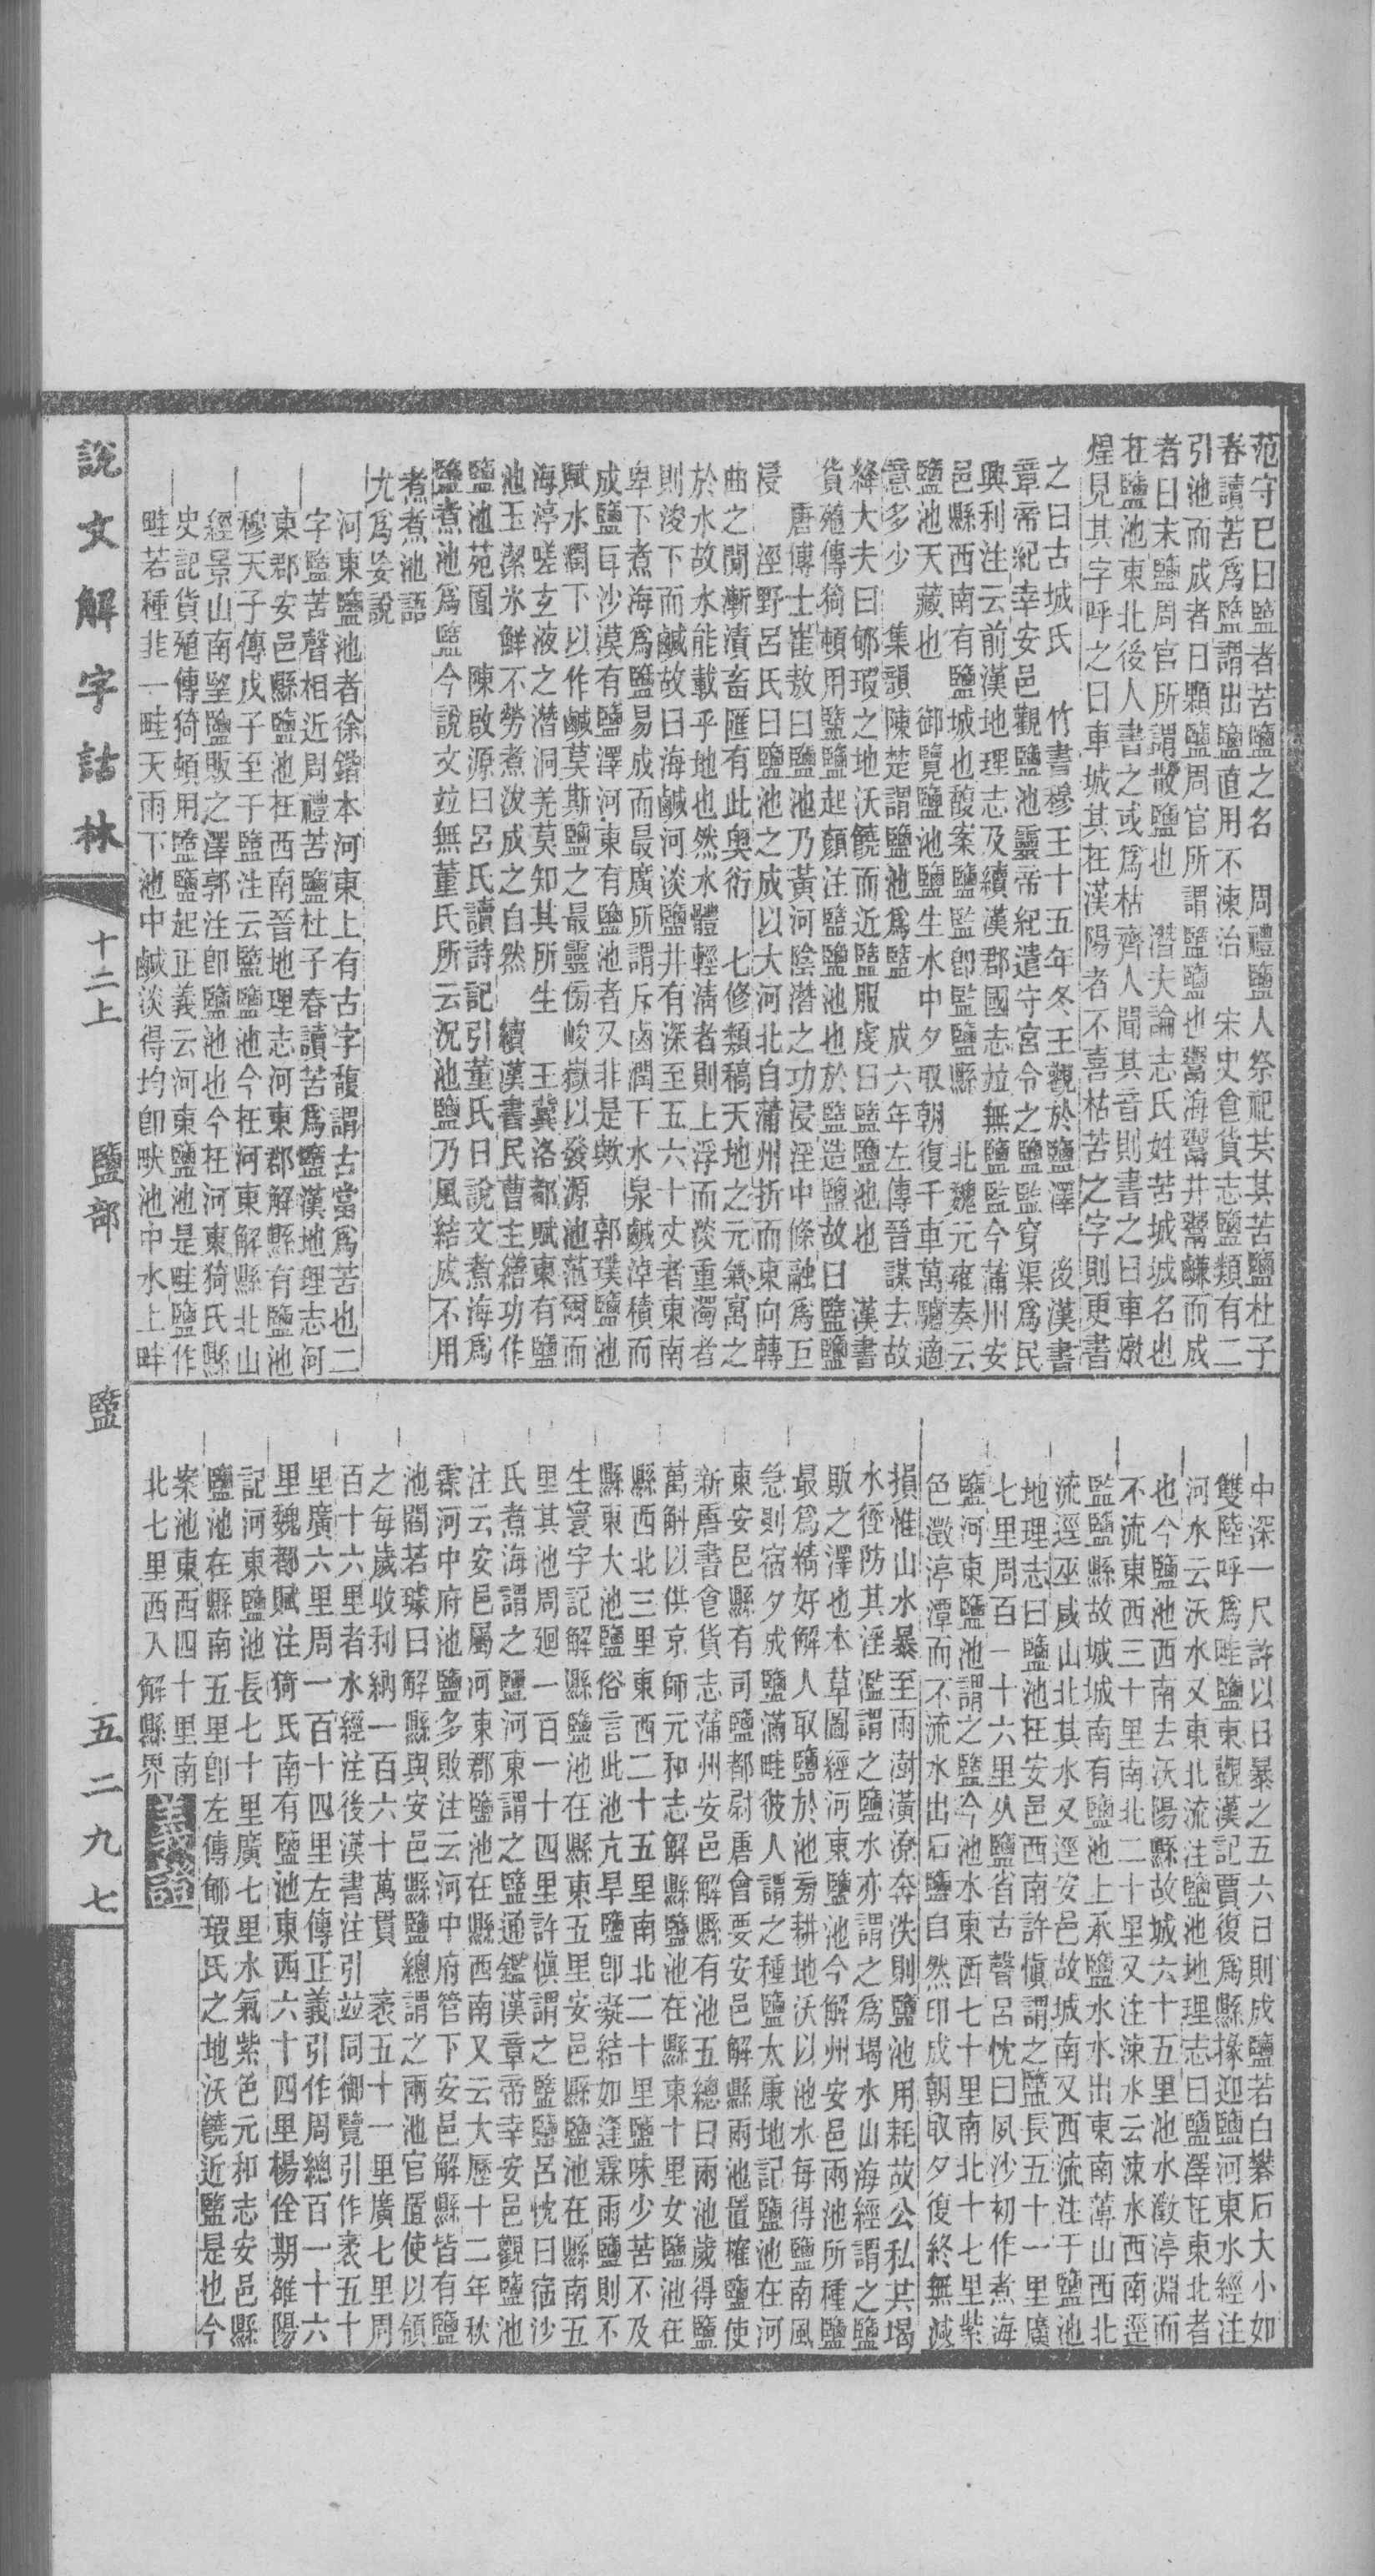 范守巳曰盬者苦鹽之名　周禮鹽人祭祀共其苦鹽杜子
春讀苦爲盬謂出鹽直用不湅治　宋史食貨志鹽類有二
引池而成者曰顆鹽周官所謂盬鹽也鬻海鬻井鬻鹻而成
者曰末鹽周官所謂散鹽也　潛夫論志氏姓苦城城名也
在鹽池東北後人書之或爲枯齊人聞其音則書之曰車燉
煌見其字呼之曰車城其在漢陽者不喜枯苦之字則更書
之曰古城氏　竹書穆王十五年冬王觀於鹽澤　後漢書
章帝紀幸安邑觀鹽池靈帝紀遣守宮令之鹽監穿渠爲民
興利注云前漢地理志及續漢郡國志竝無鹽監今蒲州安
邑縣西南有鹽城也馥案鹽監卽監鹽縣　北魏元雍奏云
鹽池天藏也　御覽鹽池鹽生水中夕取朝復千車萬驢適
意多少　集韻陳楚謂鹽池爲盬　成六年左傳晉謀去故
絳大夫曰郇瑕之地沃饒而近盬服虔曰盬鹽池也　漢書
貨殖傳猗頓用盬鹽起顏注盬鹽池也於盬造鹽故曰盬鹽
唐博士崔敖曰鹽池乃黃河陰潛之功浸淫中條融爲巨
浸　涇野呂氏曰鹽池之成以大河北自蒲州折而東向轉
曲之閒漸漬畜匯有此奥衍　七修類稿天地之元氣寓之
於水故水能載乎地也然水體輕淸者則上浮而淡重濁者
則浚下而鹹故曰海鹹河淡鹽井有深至五六十丈者東南
卑下煮海爲鹽易成而最廣所謂斥鹵潤下水泉鹹淖積而
成鹽耳沙漠有鹽澤河東有鹽池者又非是歟　郭璞鹽池
賦水潤下以作鹹莫斯鹽之最靈傍峻嶽以發源池茫爾而
海渟嗟玄液之潛洞羌莫知其所生　王冀洛都賦東有鹽
池玉潔氷鮮不勞煮沷成之自然　續漢書民曹主繕功作
鹽池苑囿　陳啟源曰呂氏讀詩記引董氏曰說文煮海爲
鹽煮池爲盬今說文竝無董氏所云況池鹽乃風結成不用
煮煮池語
尤爲妄說
河東盬池者徐鍇本河東上有古字馥謂古當爲苦也二
字盬苦聲相近周禮苦鹽杜子春讀苦爲盬漢地理志河
東郡安邑縣鹽池在西南晉地理志河東郡解縣有鹽池
穆天子傳戊子至于盬注云盬鹽池今在河東解縣北山
經景山南望鹽販之澤郭注卽鹽池也今在河東猗氏縣
史記貨殖傳猗頓用盬鹽起正義云河東鹽池是畦鹽作
畦若種韭一畦天雨下池中鹹淡得均卽畎池中水上畔
中深一尺許以日暴之五六日則成鹽若白礬石大小如
雙陸呼爲畦鹽東觀漢記賈復爲縣掾迎鹽河東水經注
河水云沃水又東北流注鹽池地理志曰鹽澤在東北者
也今鹽池西南去沃陽縣故城六十五里池水澂渟淵而
不流東西三十里南北二十里又注涑水云涑水西南逕
監鹽縣故城城南有鹽池上承鹽水水出東南薄山西北
流逕巫咸山北其水又逕安邑故城南又西流注于鹽池
地理志曰鹽池在安邑西南許愼謂之盬長五十一里廣
七里周百一十六里从鹽省古聲呂忱曰夙沙初作煮海
鹽河東鹽池謂之盬今池水東西七十里南北十七里紫
色澂渟潭而不流水出石鹽自然印成朝取夕復終無減
損惟山水暴至雨澍潢潦奔泆則鹽池用耗故公私共堨
水徑防其淫濫謂之鹽水亦謂之爲堨水山海經謂之鹽
販之澤也本草圖經河東鹽池今解州安邑兩池所種鹽
最爲精好解人取鹽於池旁耕地沃以池水每得鹽南風
急則宿夕成鹽滿畦彼人謂之種鹽太康地記鹽池在河
東安邑縣有司鹽都尉唐會要安邑解縣兩池置榷鹽使
新唐書食貨志蒲州安邑解縣有池五總曰兩池歲得鹽
萬斛以供京師元和志解縣鹽池在縣東十里女鹽池在
縣西北三里東西二十五里南北二十里鹽味少苦不及
縣東大池鹽俗言此池亢旱鹽卽凝結如逢霖雨鹽則不
生寰宇記解縣鹽池在縣東五里安邑縣鹽池在縣南五
里其池周廻一百一十四里許愼謂之盬鹽呂忱曰宿沙
氏煮海謂之鹽河東謂之盬通鑑漢章帝幸安邑觀鹽池
注云安邑屬河東郡鹽池在縣西南又云大歷十二年秋
霖河中府池鹽多敗注云河中府管下安邑解縣皆有鹽
池閻若璩曰解縣與安邑縣鹽總謂之兩池官置使以領
之每歲收利納一百六十萬貫　袤五十一里廣七里周
百十六里者水經注後漢書注引竝同御覽引作袤五十
里廣六里周一百十四里左傳正義引作周總百一十六
里魏都賦注猗氏南有鹽池東西六十四里楊佺期雒陽
記河東鹽池長七十里廣七里水氣紫色元和志安邑縣
鹽池在縣南五里卽左傳郇瑕氏之地沃饒近盬是也今
案池東西四十里南
北七里西入解縣界
說文解字詁林　十二上　鹽部　盬　五二九七